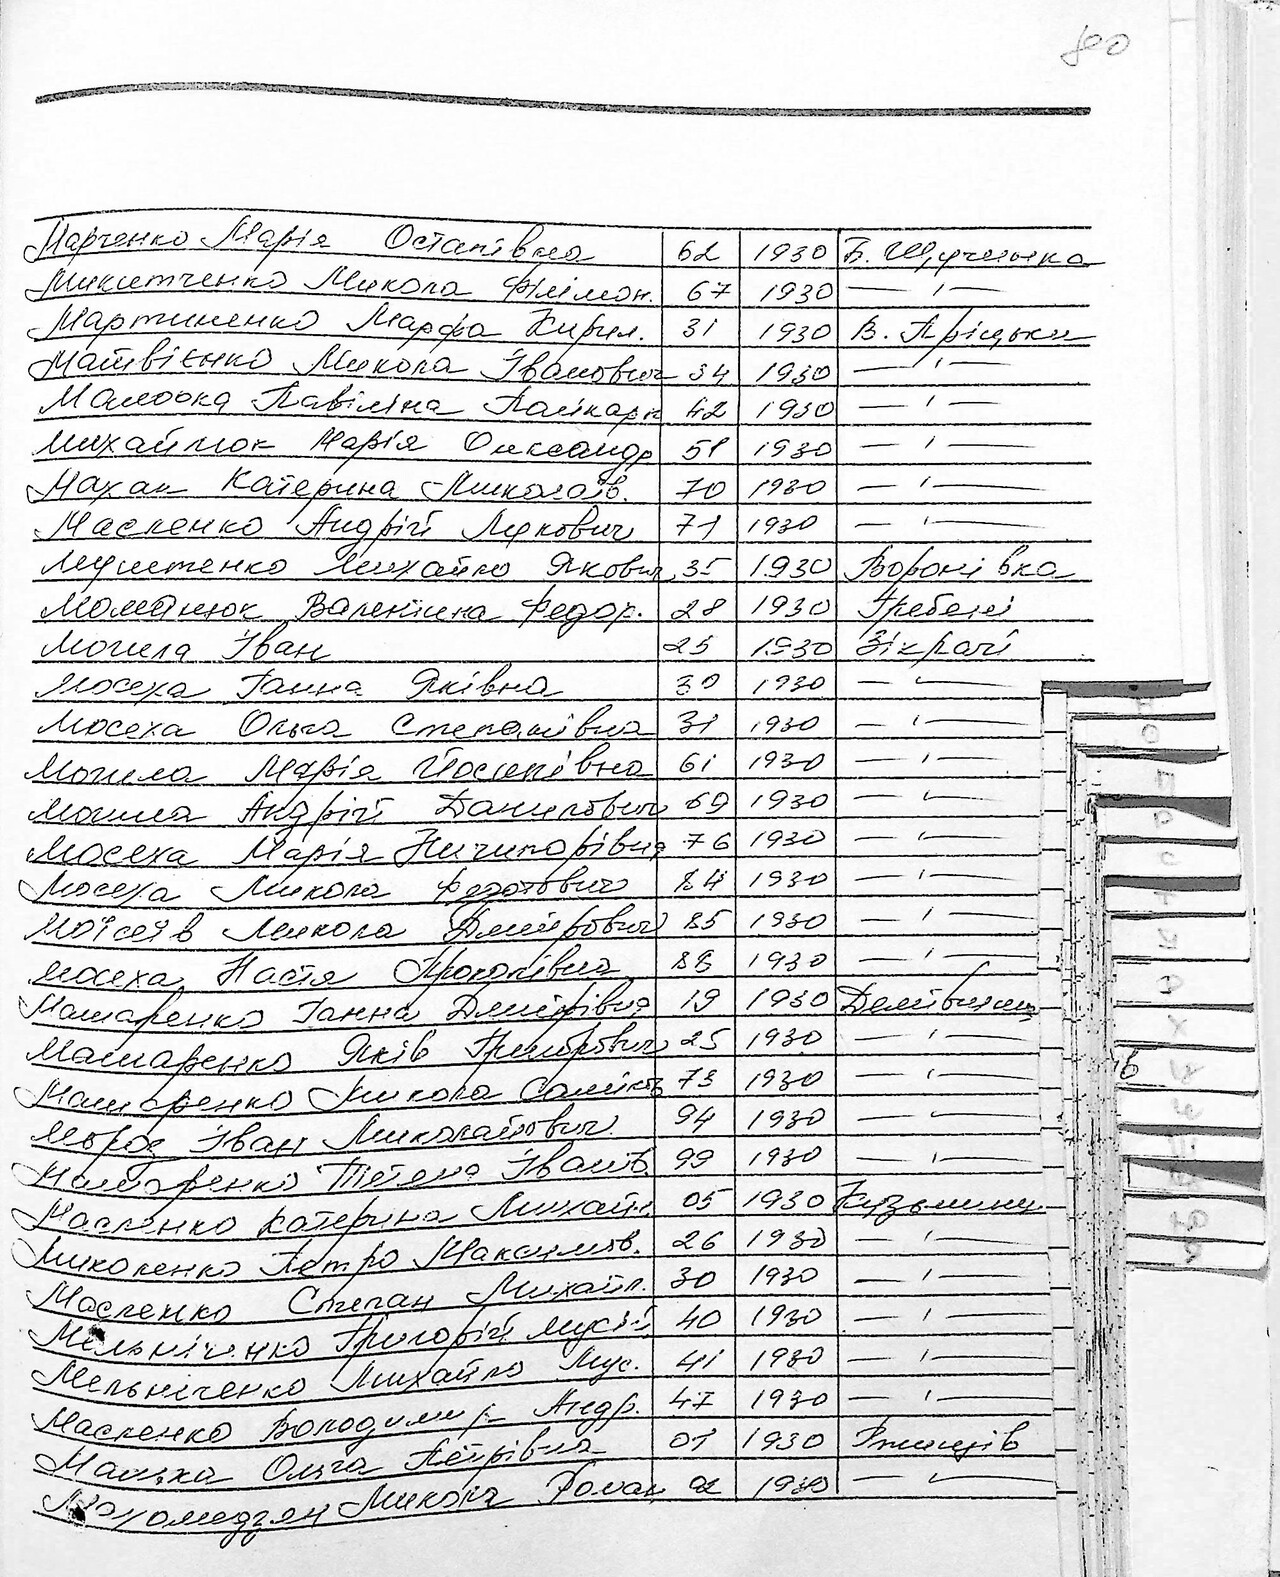 80
Марченко Марія Остапівна 62 1930 Б. Щученка
Микитченко Микола Філімон. 67 1930 — " —
Мартиненко Марфа Кирил. 31 1930 В. Пріцьки
Матвієнко Микола Іванович 34 1930 — " —
Павліна 42 1930 — " —
Михайлюк Марія Олександр 51 1930 — " —
Махак Катерина Миколаїв. 70 1930 — " —
Масленко Андрій Лукович 71 1930 — " —
Михайло Якович 35 1930 Воронівка
Валентина Федор. 28 1930 Гребені
Могила Іван 25 1930 Зікрачі
Мосеха Ганна Яківна 30 1930 — " —
Мосеха Ольга Степанівна 31 1930 — " —
Могила Марія Йосипівна 61 1930 — " —
Могила Андрій Данилович 69 1930 — " —
Мосеха Марія Ничипорівна 76 1930 — " —
Мосеха Микола Федотович 84 1930 — " —
Моїсеїв Микола Дмитрович 85 1930 — " —
Мосеха Настя Прокопівна 88 1930 — " —
Машаренко Ганна Дмитрівна 19 1930
Машаренко Яків Григорович 25 1930 — " —
Машаренко Микола 73 1930 — " —
Мороз Іван Миколайович 94 1930 — " —
Машаренко Тетяна Іванів. 99 1930 — " —
Масленко Катерина Михайл. 05 1930
Миколенко Петро Максимов. 26 1930 — " —
Масленко Степан Михайл. 30 1930 — " —
Мельніченко Григорій Мусій 40 1930 — " —
Мельніченко Михайло Мус. 41 1930 — " —
Масленко Володимир Андр. 47 1930 — " —
Ольга Петрівна 01 1930 Ржищів
Микола Роман 02 1930 — " —